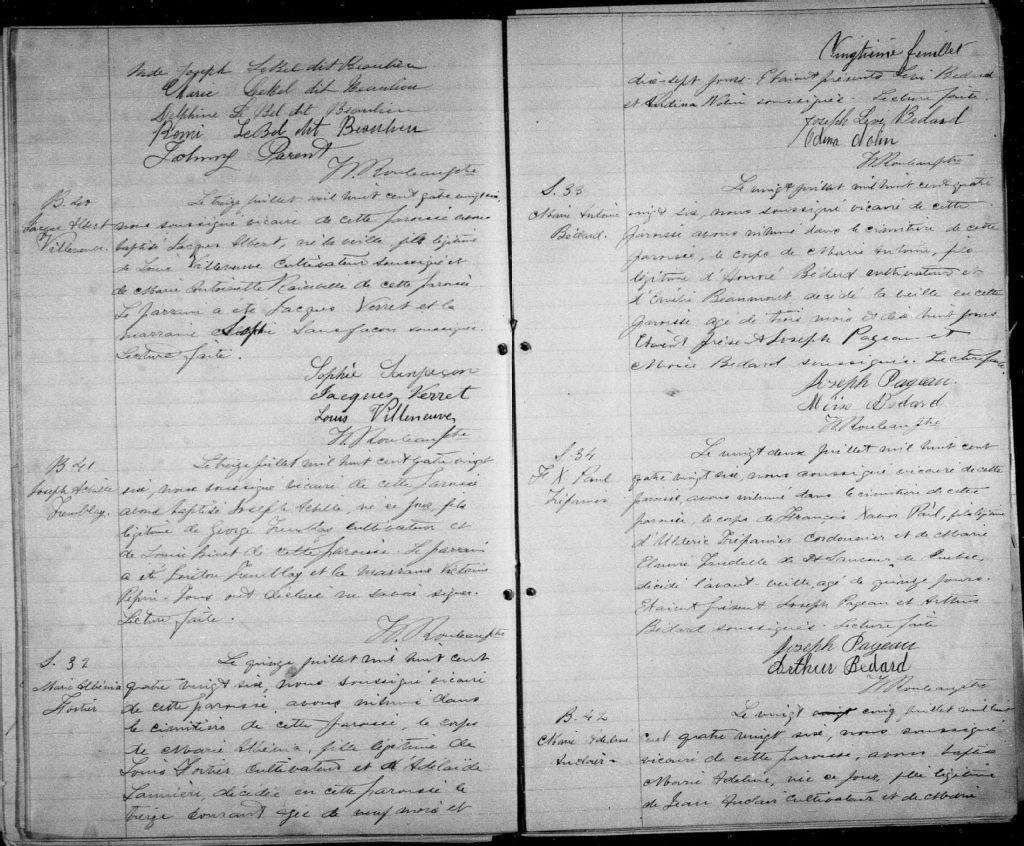 Joseph LeBel dit Beaulieu
Marie Lebel dit Beaulieu
Delphine Le Bel dit Beaulieu
Remi LeBel dit Beaulieu
Johnny Parent
H. Rouleau ptre
B. 40
Jacques Albert
Villeneuve
Le treize juillet mil huit cent quatre vingt six
nous soussigné vicaire de cette paroisse avons
baptisé Jacques Albert, né la veille, fils légitime
de Louis Villeneuve cultivateur soussigné et
de Marie Antoinette de cette paroisse
Le parrain a été Jacques Verret et la
marraine Sophie Sansfaçon soussignés.
Lecture faite.
Sophie Sanfaçon
Jacques Verret
Louis Villeneuve
H. Rouleau ptre
B 41
Joseph Achille
Tremblay.
Le treize juillet mil huit cent quatre vingt
six, nous soussigné vicaire de cette paroisse
avons baptisé Joseph Achille, né ce jour, fils
légitime de George Tremblay cultivateur et
de Louise Binet de cette paroisse. Le parrain
a été Tremblay et la marraine Victorine
Pepin. Tous ont déclaré ne savoir signer.
Lecture faite.
H. Rouleau ptre
S. 32
Marie Albénia
Fortier
Le quinze juillet mil huit cent
quatre vingt six, nous soussigné vicaire
de cette paroisse, avons inhumé dans
le cimitière de cette paroisse, le corps
de Marie Albénia, fille légitime de
Louis Fortier cultivateur et d'Adelaide
décédée en cette paroisse le
treize courant agée de neuf mois et
Vingtième feuillet
dix-sept jours. Etaient présents Levi Bédard
et Nolin soussignés. Lecture faite.
Joseph Levi Bedard
Odina Nolin
H. Rouleau ptre
S. 33
Marie Antoine
Bédard.
Le vingt juillet mil huit cent quatre
vingt six, nous soussigné vicaire de cette
paroisse avons inhumé dans le cimitière de cette
paroisse, le corps de Marie Antoine, fils
légitime d'Honoré Bédard cultivateur et
d' Beaumont, décédé la veille en cette
paroisse agé de trois mois et dix huit jours
Etaient présents Joseph Pageau et
Moïse Bédard soussignés. Lecture faite.
Joseph Pageau.
Moïse Bedard
H. Rouleau ptre
S. 34
F X Paul
Trépanier
Le vingt deux juillet mil huit cent
quatre vingt six, nous soussigné vicaire de cette
paroisse, avons inhumé dans le cimitière de cette
paroisse, le corps de François Xavier Paul, fils légitime
d'Ulderic Trépanier Cordonnier et de Marie
de St Sauveur de Quebec,
décédé l'avant-veille, agé de quinze jours.
Etaient présent Joseph Pageau et Arthur
Bédard soussignés. Lecture faite
Joseph Pageau
Arthur Bédard
H. Rouleau ptre
B. 42
Marie Adeline
Auclair
Le vingt cinq juillet mil huit
cent quatre vingt six, nous soussigné
vicaire de cette paroisse, avons baptisé
Marie Adeline, née ce jour, fille légitime
de Jean Auclair cultivateur et de Marie